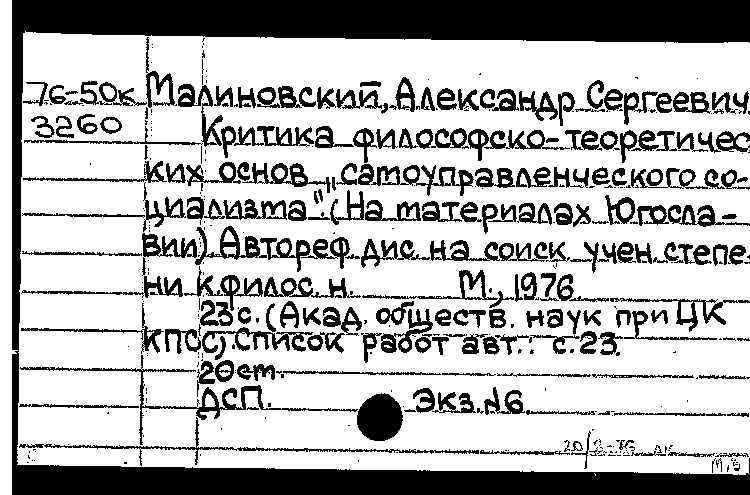 76-50к Малиновский, Александр Сергеевич
3260 Критика философско-теоретичес
ких основ „самоуправленческого со-
циализма". (На материалах Югосла-
вии). Автореф. дис. на соиск. учен. степе-
ни к. филос. н. М., 1976.
23 с. (Акад. обществ. наук при ЦК
КПСС). Список работ авт.: с. 23.
20 см.
ДСП. Экз. №6.